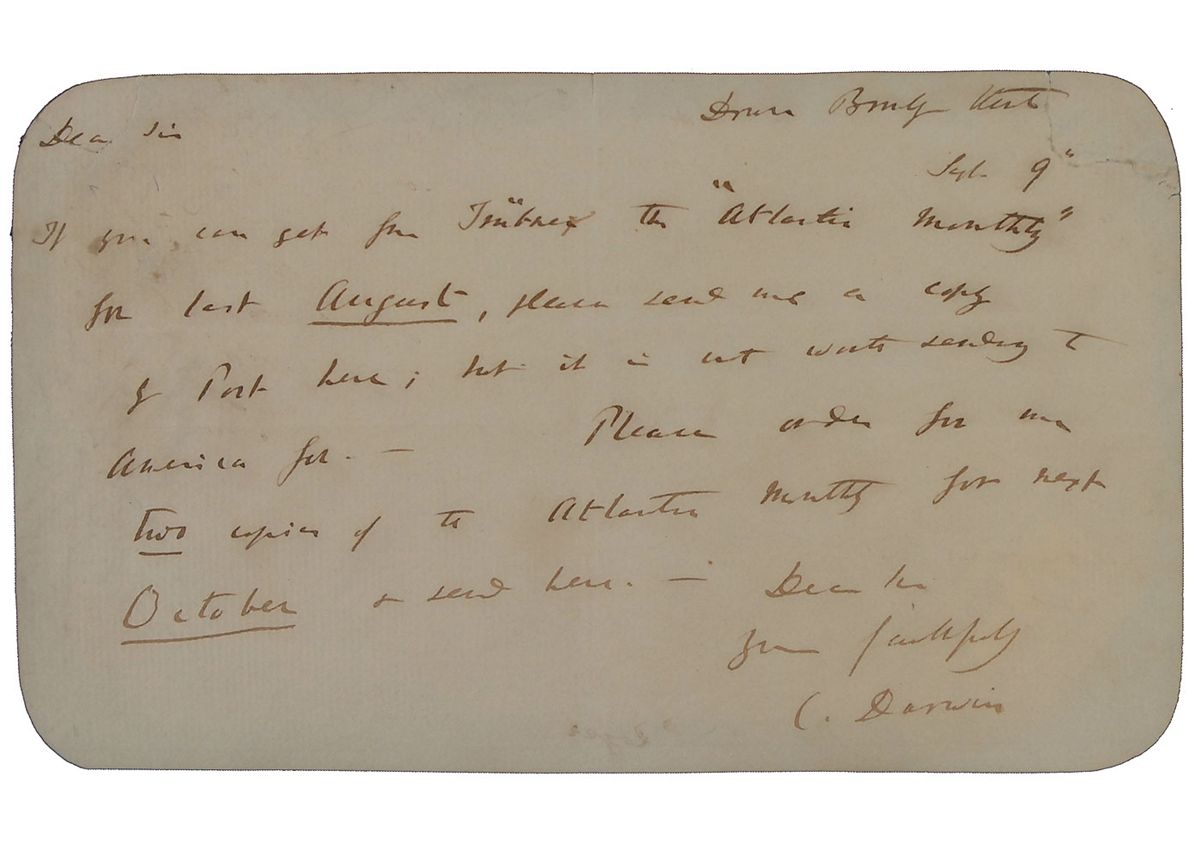 Down Bromley Kent
Dear Sir
Sept. 9"
If you can get from Trübner the "Atlantic Monthly"
for last August, please send me a copy
by Post here; but it is not worth sending to
America for. — Please order for me
two copies of the Atlantic Monthly for next
October & send here. — Dear Sir
Yours faithfully
C. Darwin